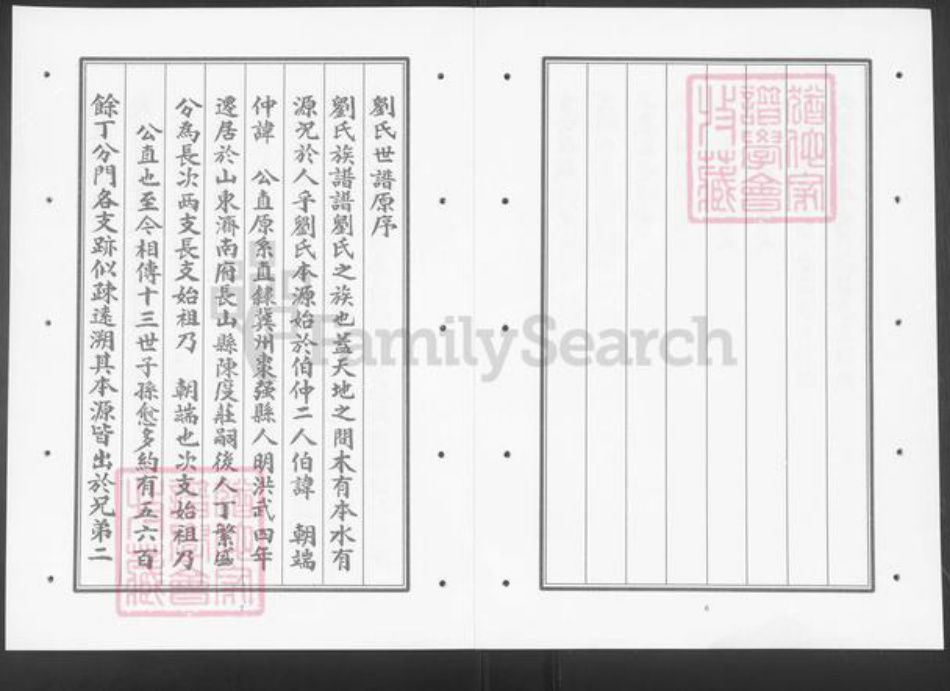 劉氏世譜原序
劉氏族譜譜劉氏之族也蓋天地之間木有本水有
源况於人乎劉氏本源始於伯仲二人伯諱　朝端
仲諱　公直原系直隸冀州棗强縣人明洪武四年
遷居於山東濟南府長山縣陳度莊嗣後人丁繁盛
分為長次两支長支始祖乃　朝端也次支始祖乃
公直也至今相傳十三世子孫愈多約有五六百
餘丁分門各支跡似疎遠溯其本源皆出於兄弟二
猶他家
譜學會
收藏
猶他家
譜學會
收藏
FamilySearch